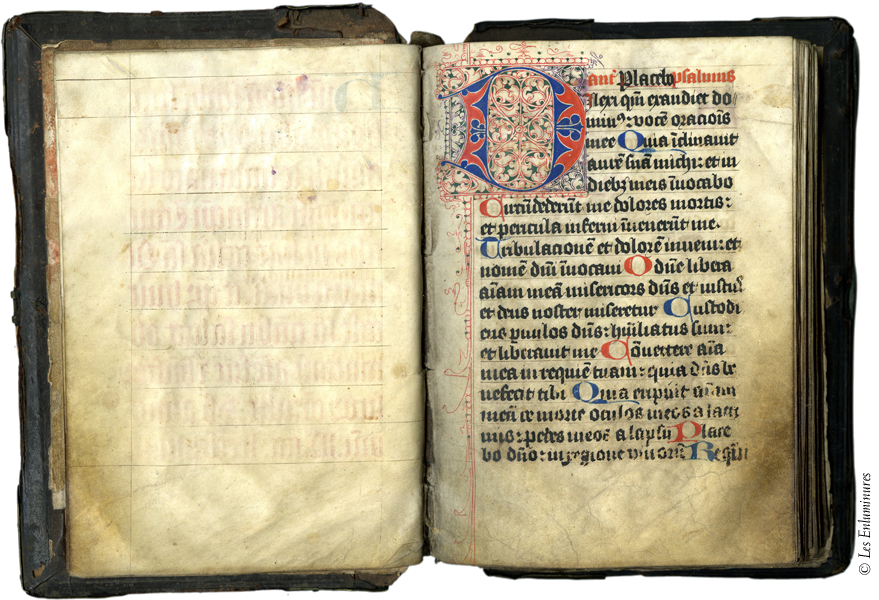 ant̄. Placebo psalmus
Dilexi qm̄ exaudiet do
minꝰ: vocē oracōis
mee Quia īclinavit
aurē suā michi: et in
diebꝫ meis īvocabo
Circūdederūt me dolores mortis:
et pericula inferni invenerūt me.
Tribulacionē et dolorē inveni: et
nomē dn̄i īvocavi O dn̄e libera
aīam meā misericors dn̄s et iustꝰ
et deus noster miseretur Custodi
ens pvulos dn̄s: hūiliatus sum:
et liberavit me Cōvertere aīa
mea in requiē tuam: quia dn̄s be
nefecit tibi Quia eripuit aīam
meā de morte oculos meos a lacri
mis: pedes meos a lapsu Place
bo dn̄o: in regione vivorū Requiē
© Les Enluminures